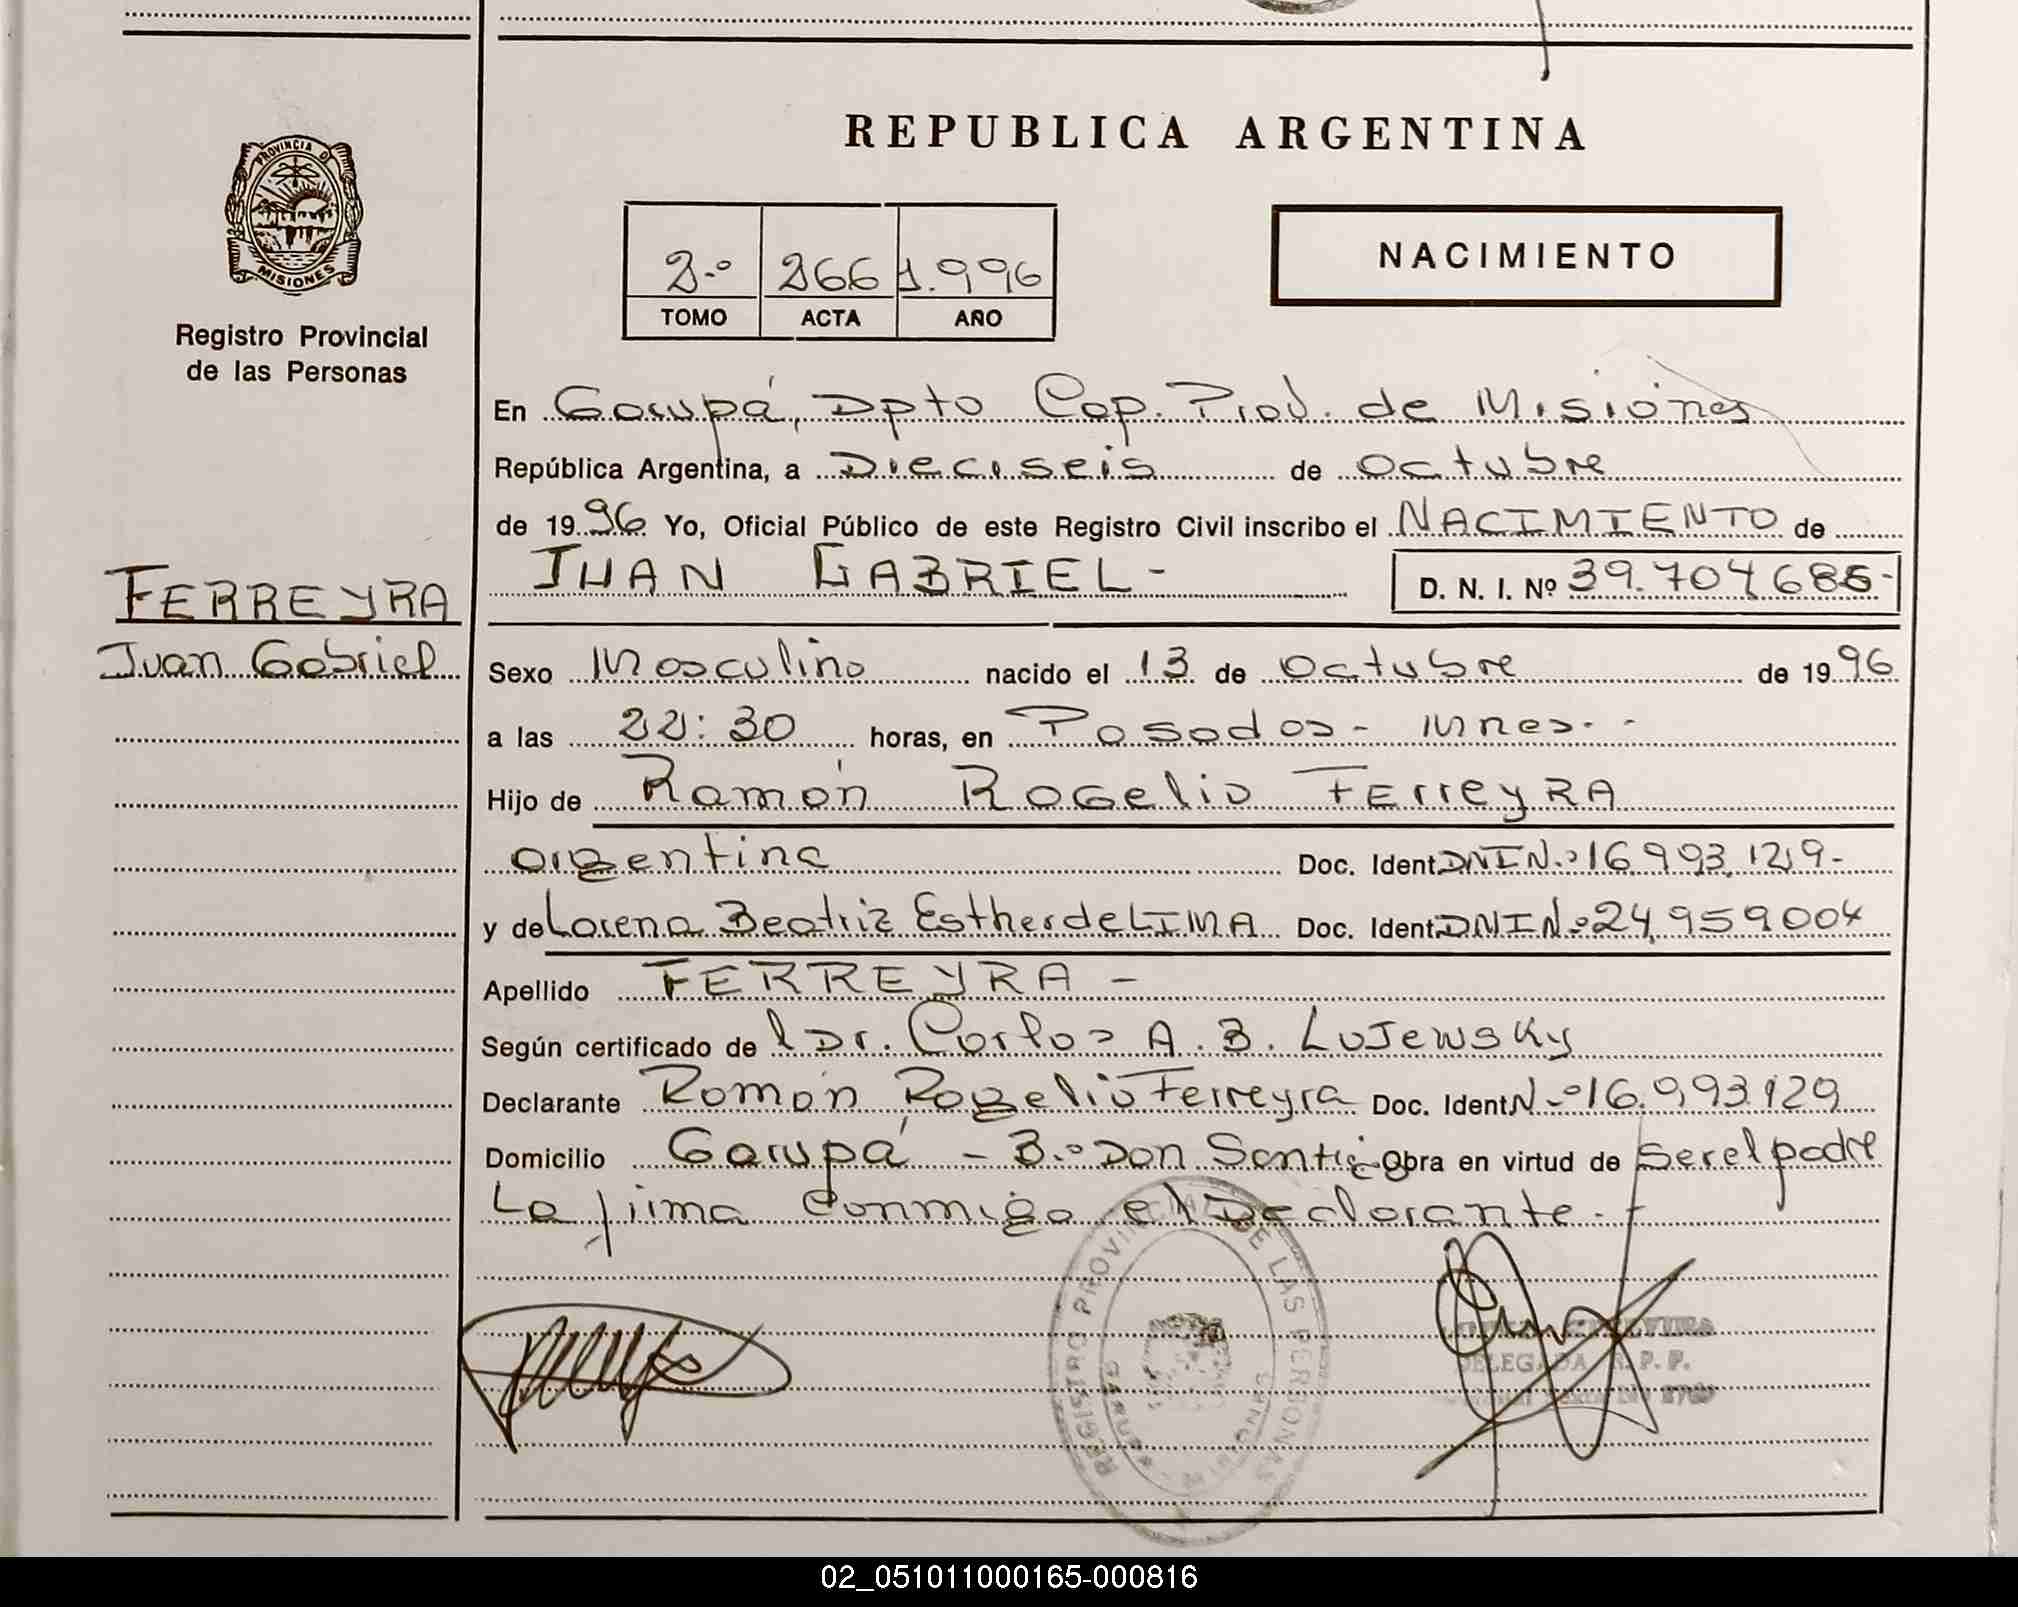 REPUBLICA ARGENTINA
PROVINCIA DE
MISIONES
Registro Provincial
de las Personas
2.º 266 1.996
TOMO ACTA AÑO
NACIMIENTO
En Garupá, Dpto Cap. Prov. de Misiones
República Argentina, a Dieciseis de octubre
de 1996 Yo, Oficial Público de este Registro Civil inscribo el NACIMIENTO de
JUAN GABRIEL - D. N. I. Nº 39.704686-
FERREYRA
Juan Gabriel
Sexo Masculino nacido el 13 de octubre de 1996
a las 22:30 horas, en Posadas - Mnes.
Hijo de Ramón Rogelio FerreyRA
argentina Doc. Ident DNI N.º 16.993.129-
y de Lorena Beatriz Esther de LIMA Doc. Ident DNI Nº 24.959004
Apellido FERREYRA -
Según certificado del Dr. Carlos A. B. Lujewsky
Declarante Ramón Rogelio Ferreyra Doc. Ident N.º 16.993.129
Domicilio Garupá - B.º Don Santiago Obra en virtud de ser el padre
La firma conmigo el Declarante.-
REGISTRO PROVINCIAL DE LAS PERSONAS
GARUPA
MISIONES
DELEGADA R. P. P.
02_051011000165-000816